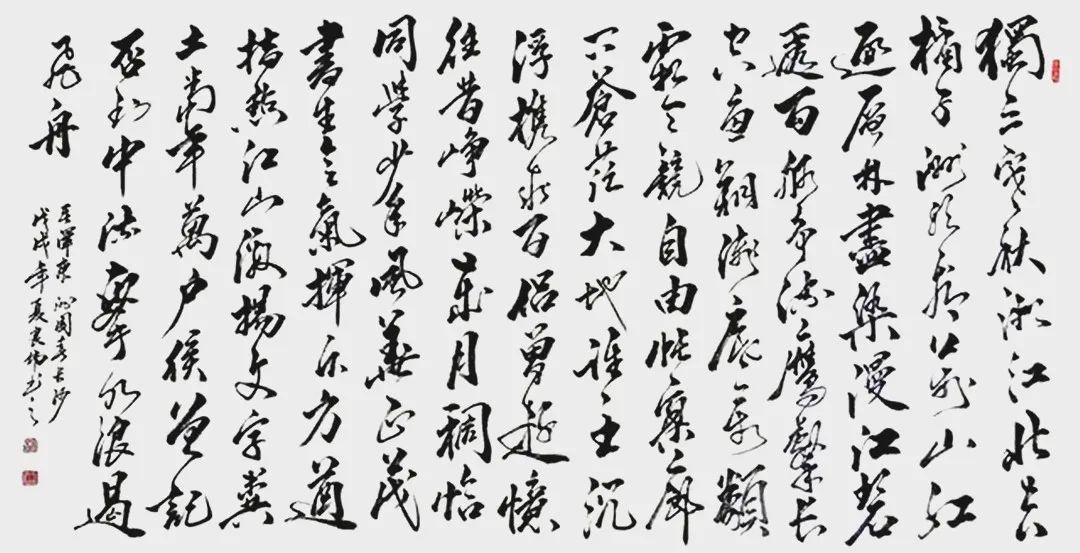 獨立寒秋湘江北去
橘子洲頭看萬山紅
遍層林盡染漫江碧
透百舸爭流鷹擊長
空魚翔淺底萬類
霜天競自由悵寥廓
問蒼茫大地誰主沉
浮攜來百侶曾遊憶
往昔崢嶸歲月稠恰
同學少年風華正茂
書生意氣揮斥方遒
指點江山激揚文字糞
土當年萬戶侯曾記
否到中流擊水浪遏
飛舟
毛澤東沁園春長沙
戊戌年夏書之